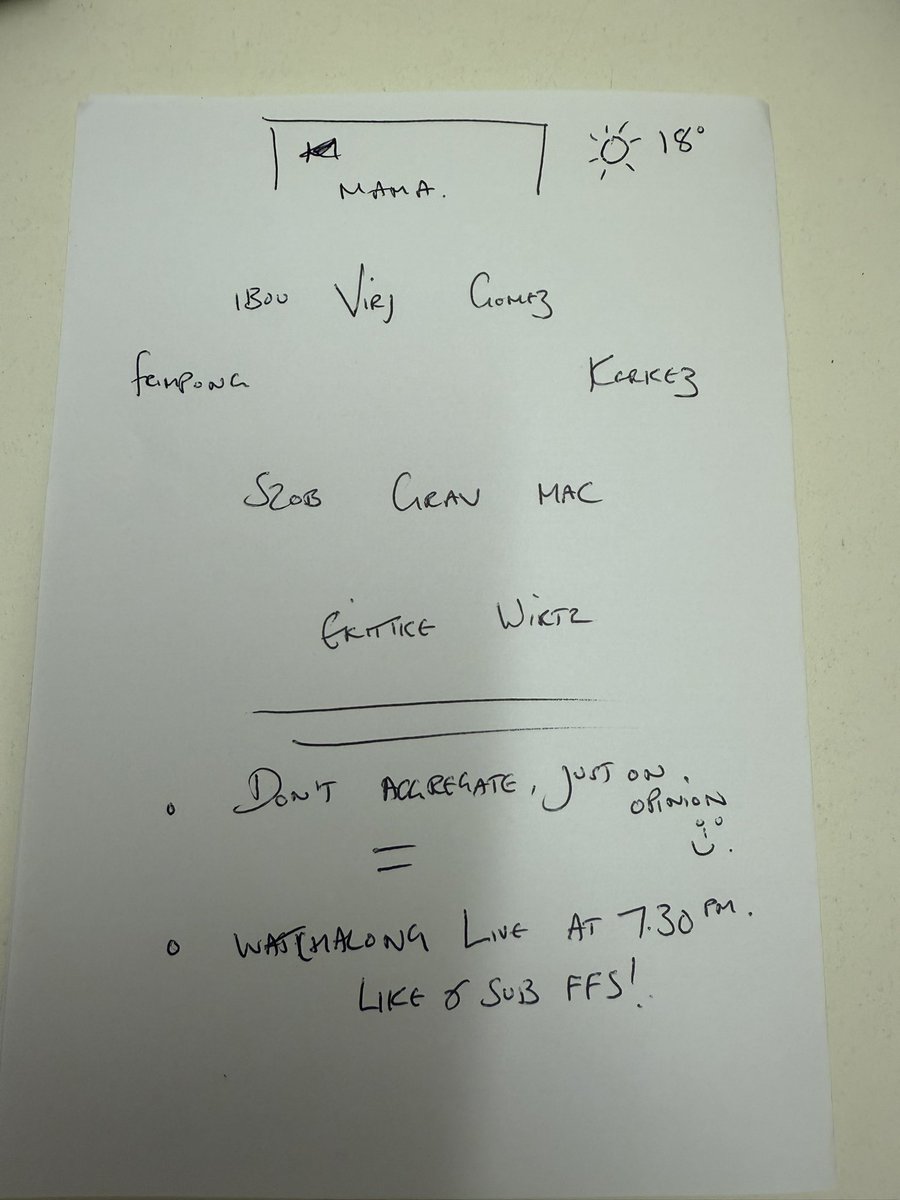 18°
MAMA.
IBOU VIRJ GOMEZ
FRIMPONG KERKEZ
SZOB GRAV MAC
EKITIKE WIRTZ
• DON'T AGGREGATE, JUST ON.
OPINION
=
• WATCHALONG LIVE AT 7.30 PM.
LIKE & SUB FFS!